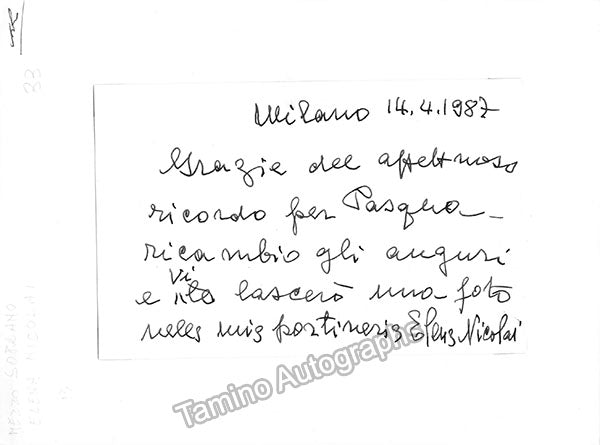 Milano 14.4.1987
Grazie del affettuoso
ricordo per Pasqua –
ricambio gli auguri
e vi lascerò una foto
nella mia portineria Elena Nicolai
Tamino Autographs
MEZZO SOPRANO
ELENA NICOLAI